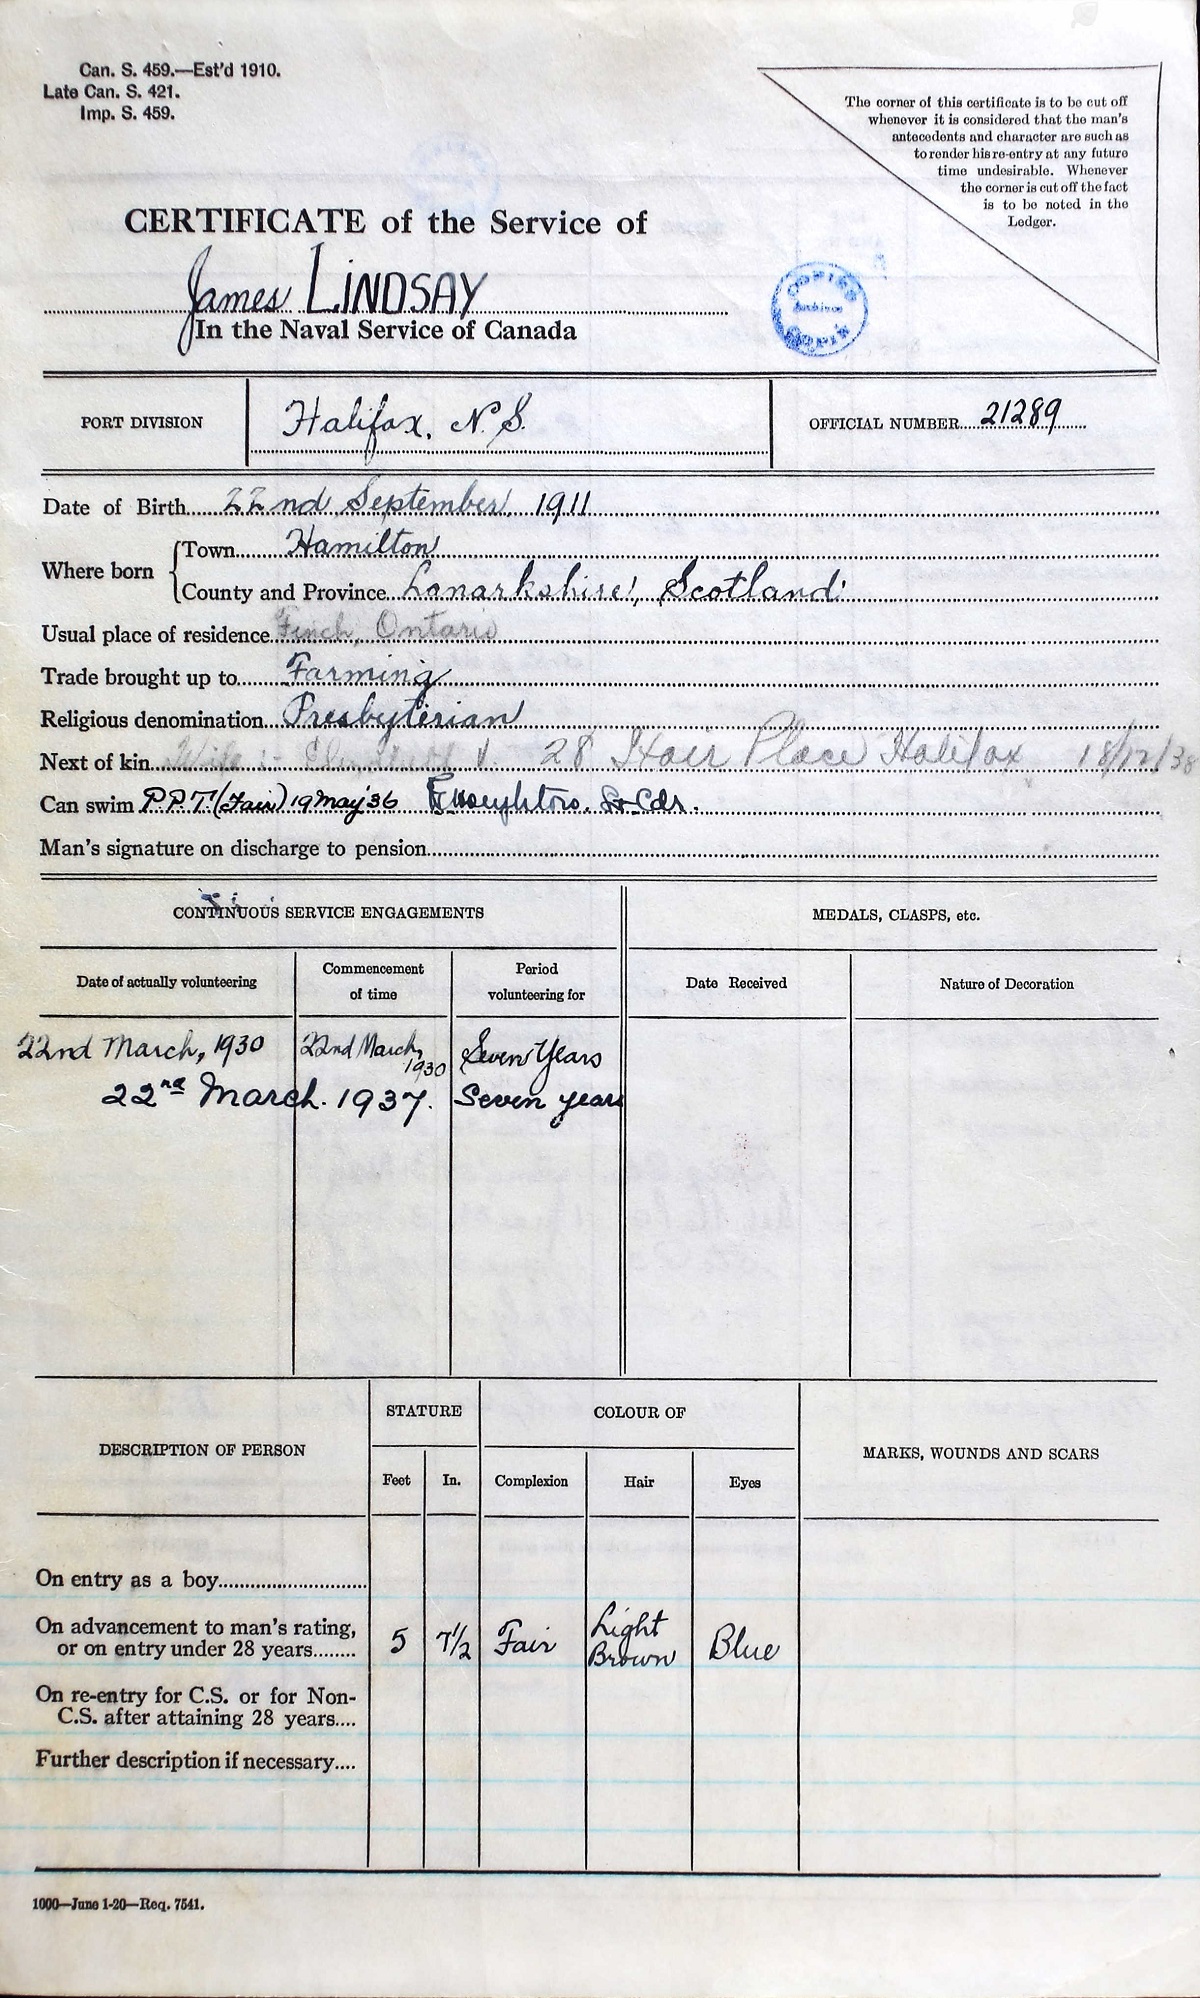 Can. S. 459.—Est'd 1910.
Late Can. S. 421.
Imp. S. 459.
The corner of this certificate is to be cut off
whenever it is considered that the man's
antecedents and character are such as
to render his re-entry at any future
time undesirable. Whenever
the corner is cut off the fact
is to be noted in the
Ledger.
CERTIFICATE of the Service of
James LINDSAY
In the Naval Service of Canada
PORT DIVISION Halifax, N.S. OFFICIAL NUMBER 21289
Date of Birth 22nd September, 1911
Where born Town Hamilton
County and Province Lanarkshire, Scotland
Usual place of residence Finch, Ontario
Trade brought up to Farming
Religious denomination Presbyterian
Next of kin Wife :- 28 Hair Place Halifax 18/12/38
Can swim P.P.T. (Fair) 19 May '36 Lt-Cdr.
Man's signature on discharge to pension
CONTINUOUS SERVICE ENGAGEMENTS MEDALS, CLASPS, etc.
Date of actually volunteering Commencement of time Period volunteering for Date Received Nature of Decoration
22nd March, 1930 22nd March, 1930 Seven Years
22nd March. 1937. Seven years
DESCRIPTION OF PERSON STATURE COLOUR OF MARKS, WOUNDS AND SCARS
Feet In. Complexion Hair Eyes
On entry as a boy
On advancement to man's rating,
or on entry under 28 years 5 7½ Fair Light Brown Blue
On re-entry for C.S. or for Non-
C.S. after attaining 28 years
Further description if necessary
1000—June 1-20—Req. 7541.